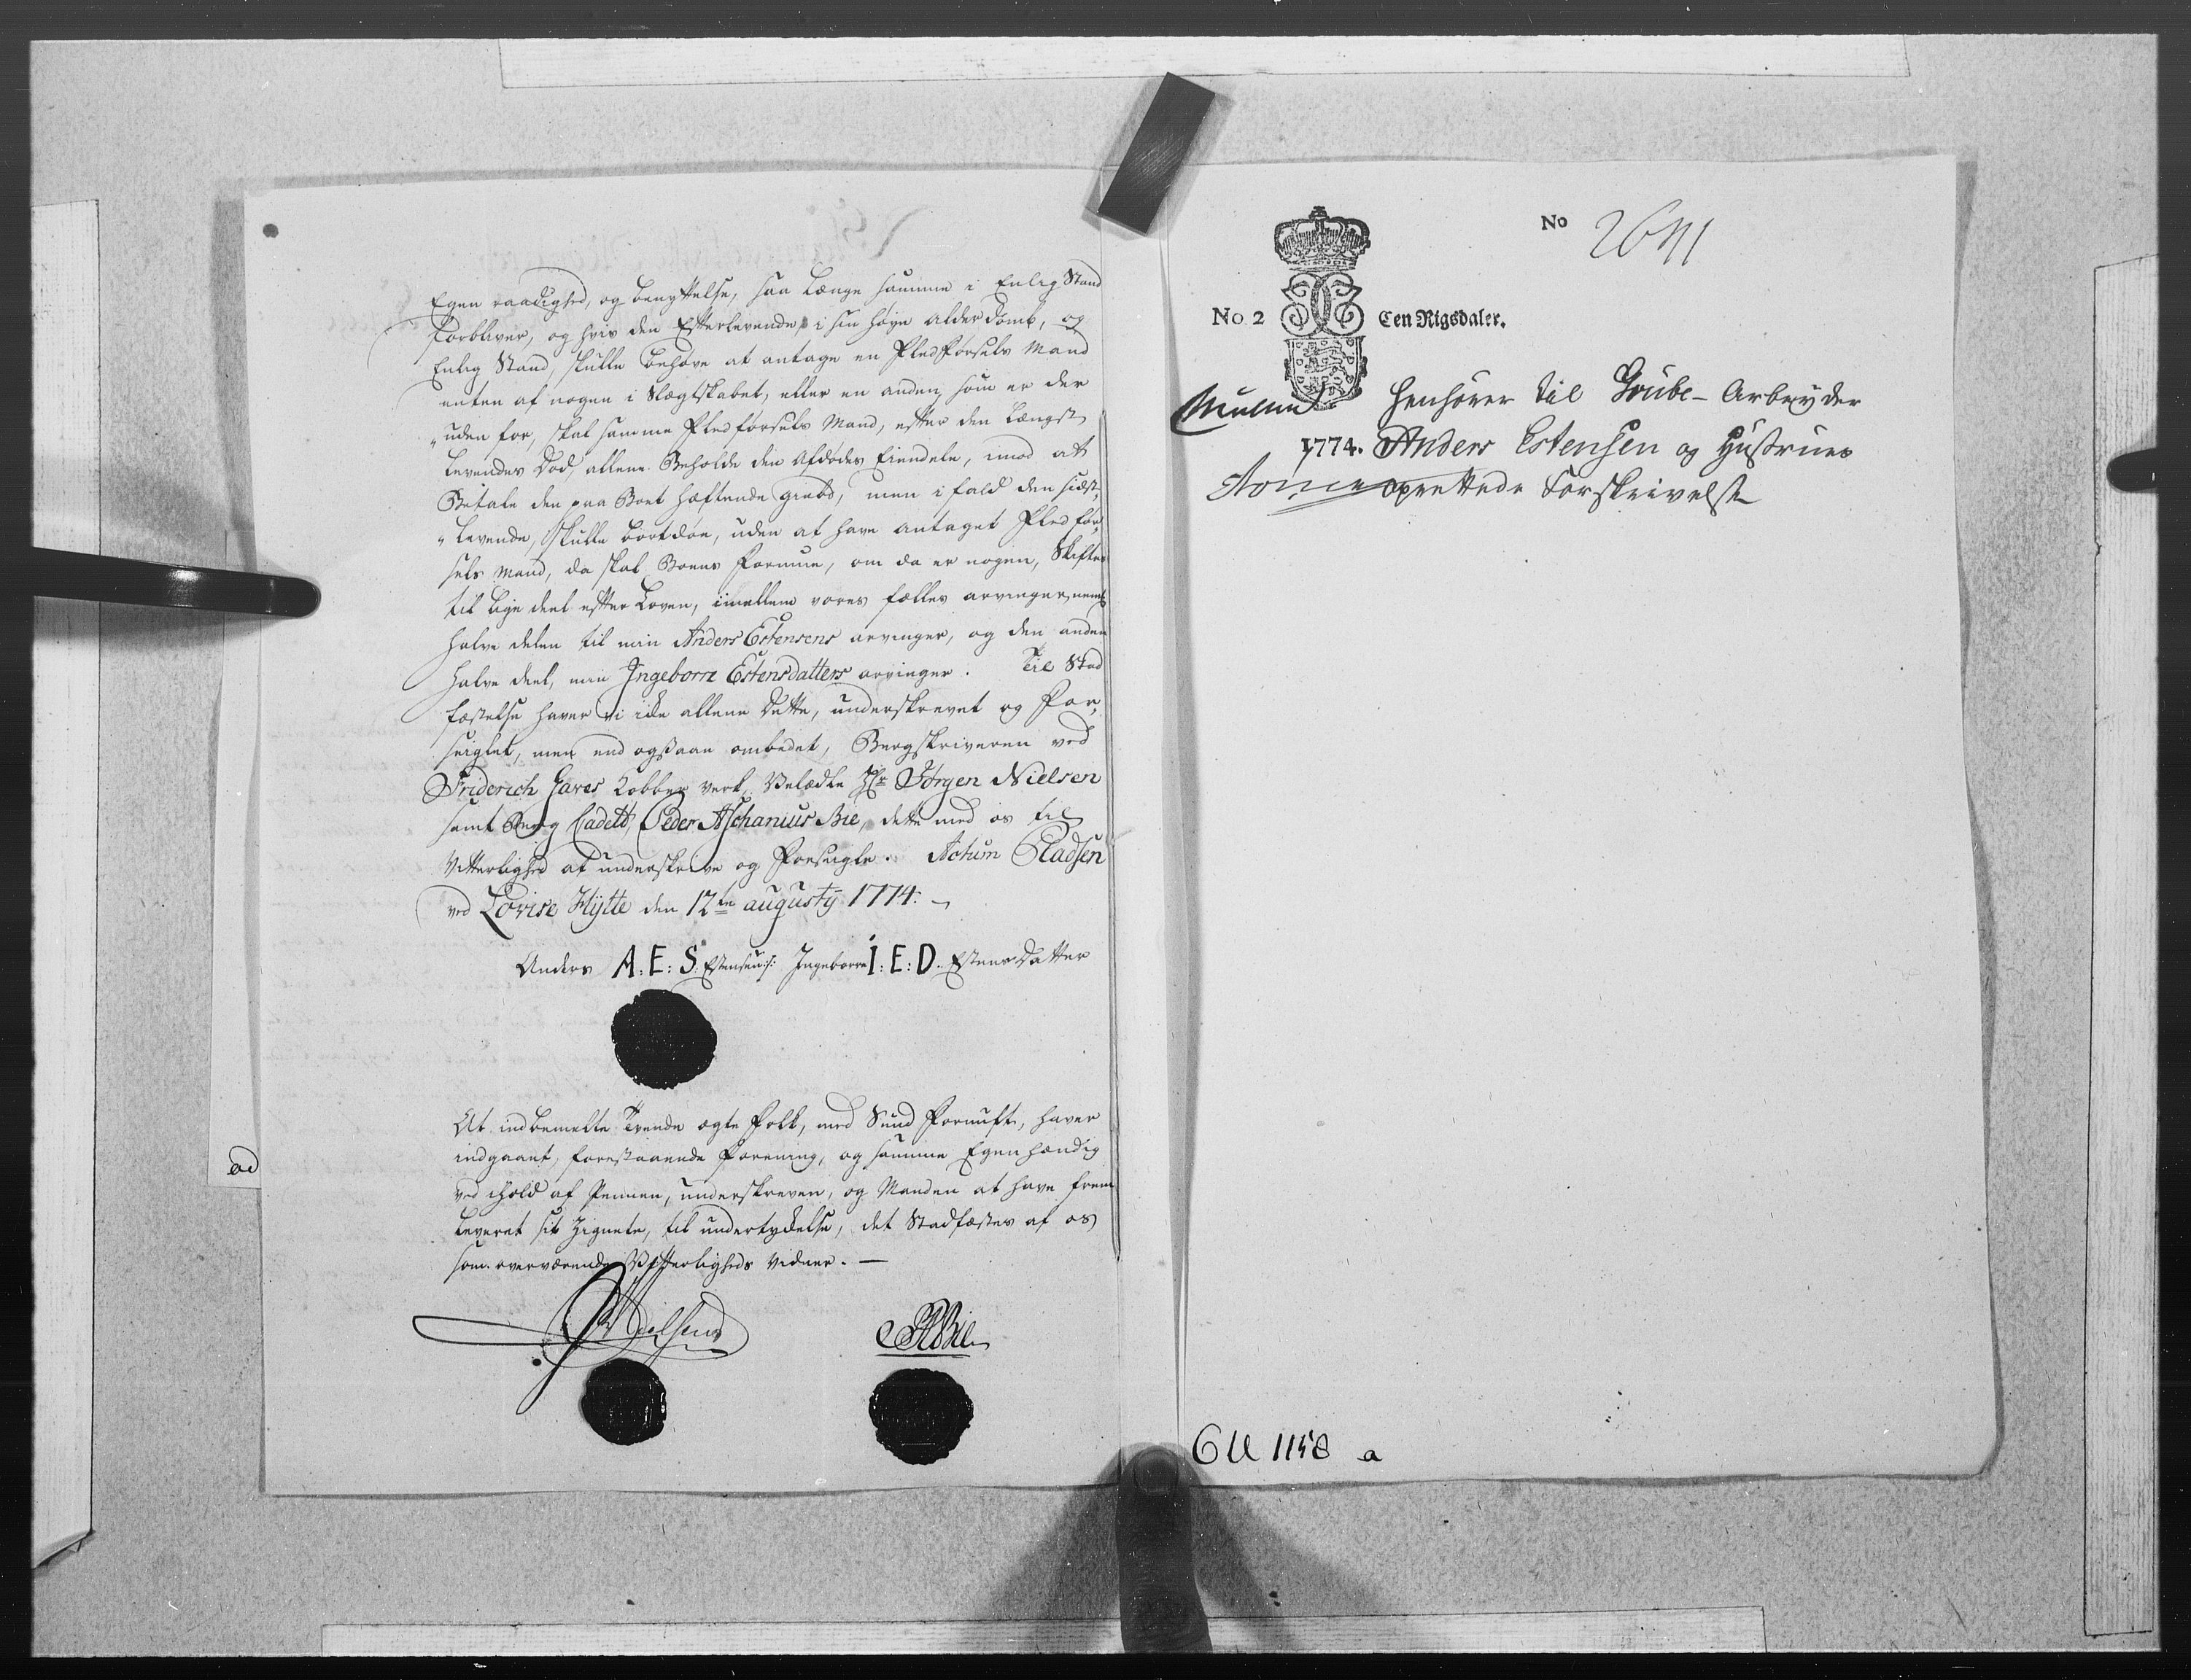 Egen raadighed, og benyttelse, saa Længe samme i Enlig Stand
forbliver, og hvis den Efterlevende i sin høye alderdomb, og
Enlig Stand, skulle behøve at antage en Fledførsels Mand
enten af nogen i Slægtskabet, eller en anden som er der
uden for, skal samme Fledførsels Mand, efter den Længst
Levendes Død, allene Beholde den Afdødes Eiendele, imod at
Betale den paa Boet hæftende gield, men i fald den sidst
Levende, skulle bortdøe, uden at have antaget Fledfør,
sels Mand, da skal Boens formue, om da er nogen, Skiftes
til lige deel efter Loven, imellem vores fælles arvinger, nemlig
halve delen til min Anders Estensens arvinger, og den anden
halve deel, min Ingeborre Estensdatters arvinger. Til Stad
fæstelse haver vi icke allene dette, underskrevet og for,
seiglet, men end ogsaa ombedet, Bergskriveren ved
Friderich Gaves Kobber verk, Velædle Hr. Jørgen Nielsen
samt Berg Cadett, Peder Aschanius Bie, dette med os til
Vitterlighed at underskrive og forseigle. Actum Pladsen
ved Lovise Hytte den 12te augusty 1774.
Anders A: E: S. Estensen Ingeborre I: E: D. Estens Datter
At indbemelte Tvende ægte folk, med Sund fornuft, haver
indgaaet, forestaaende forening, og samme Egenhændig
ved ihold af Pennen, underskreven, og Manden at have frem
leveret sit Zignete, til undertrykelse, det Stadfæstes af os
som overværende Vitterligheds Vidner.
Nielsen PABie
ad
No 2641
No 2 Een Rigsdaler.
henhører til Grube-Arbeyder
1774. Anders Estensen og Hustrues
oprettede Forskrivelse
GU 1158 a